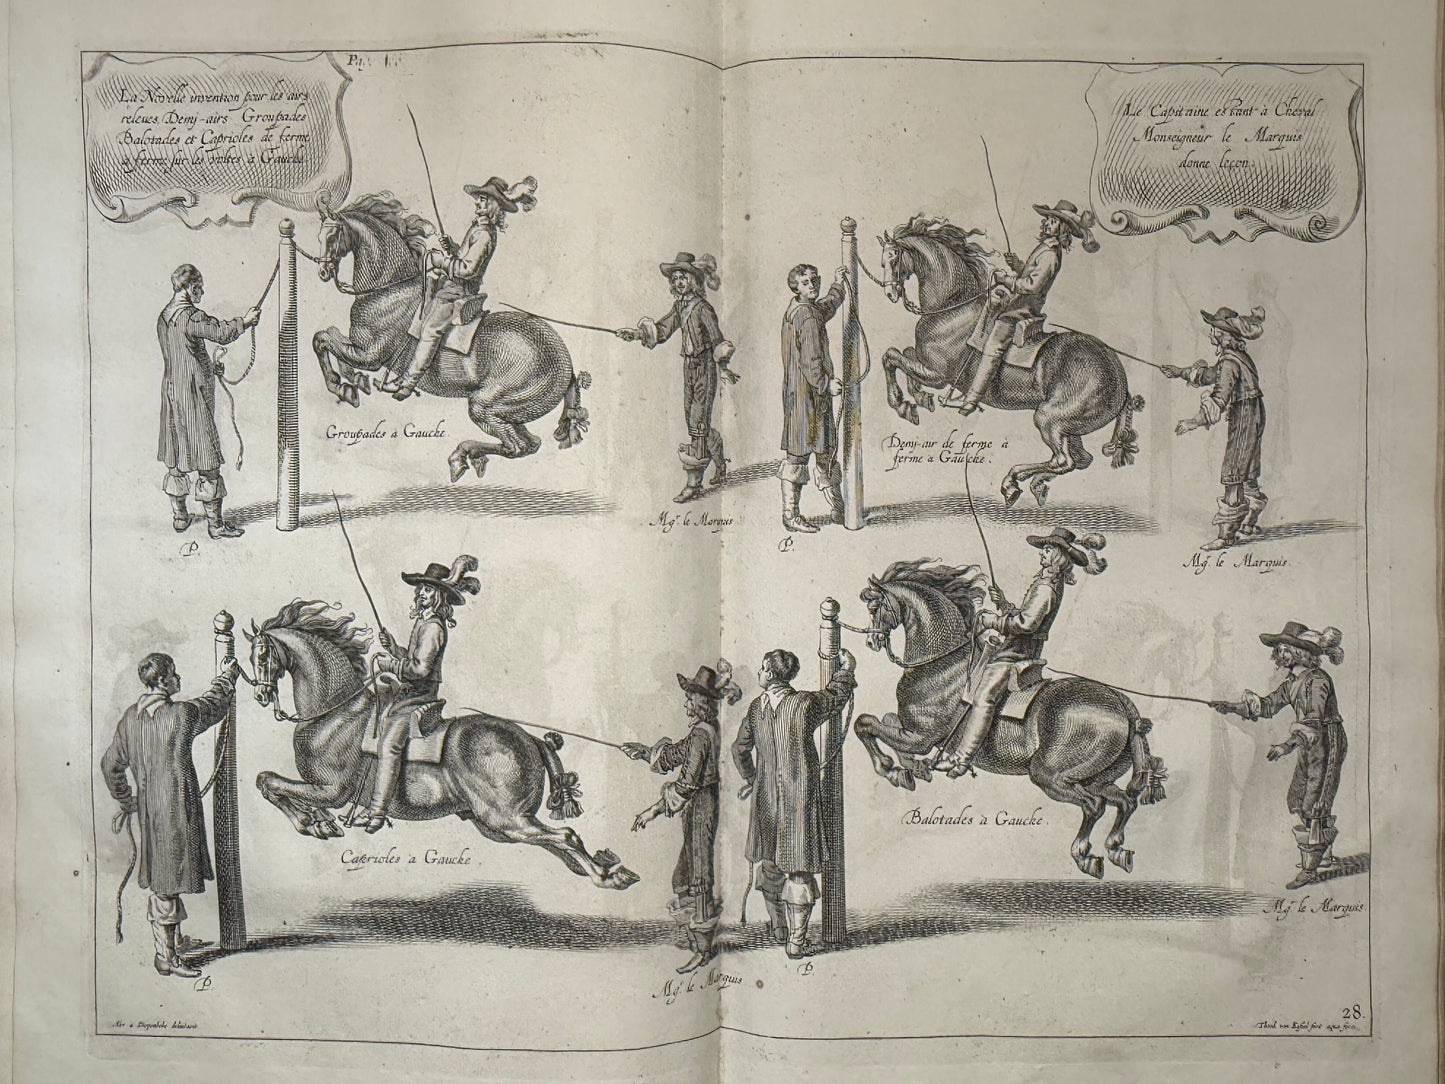 Pag.
La Novelle invention pour les airs
releves, Demy-airs Groupades
Balotades et Caprioles de ferme
à ferme sur les voltes à Gauche
Le Capitaine estant à Cheval
Monseigneur le Marquis
donne leçon.
Groupades à Gauche.
P.
Mgr. le Marquis
Demy-air de ferme à
ferme à Gauche.
P.
Mgr. le Marquis.
Caprioles à Gauche.
P
Mgr. le Marquis
Balotades à Gauche.
P
Mgr. le Marquis
Abr a Diepenbeke delineavit
28.
Theod. van Kessel fecit aqua forti.